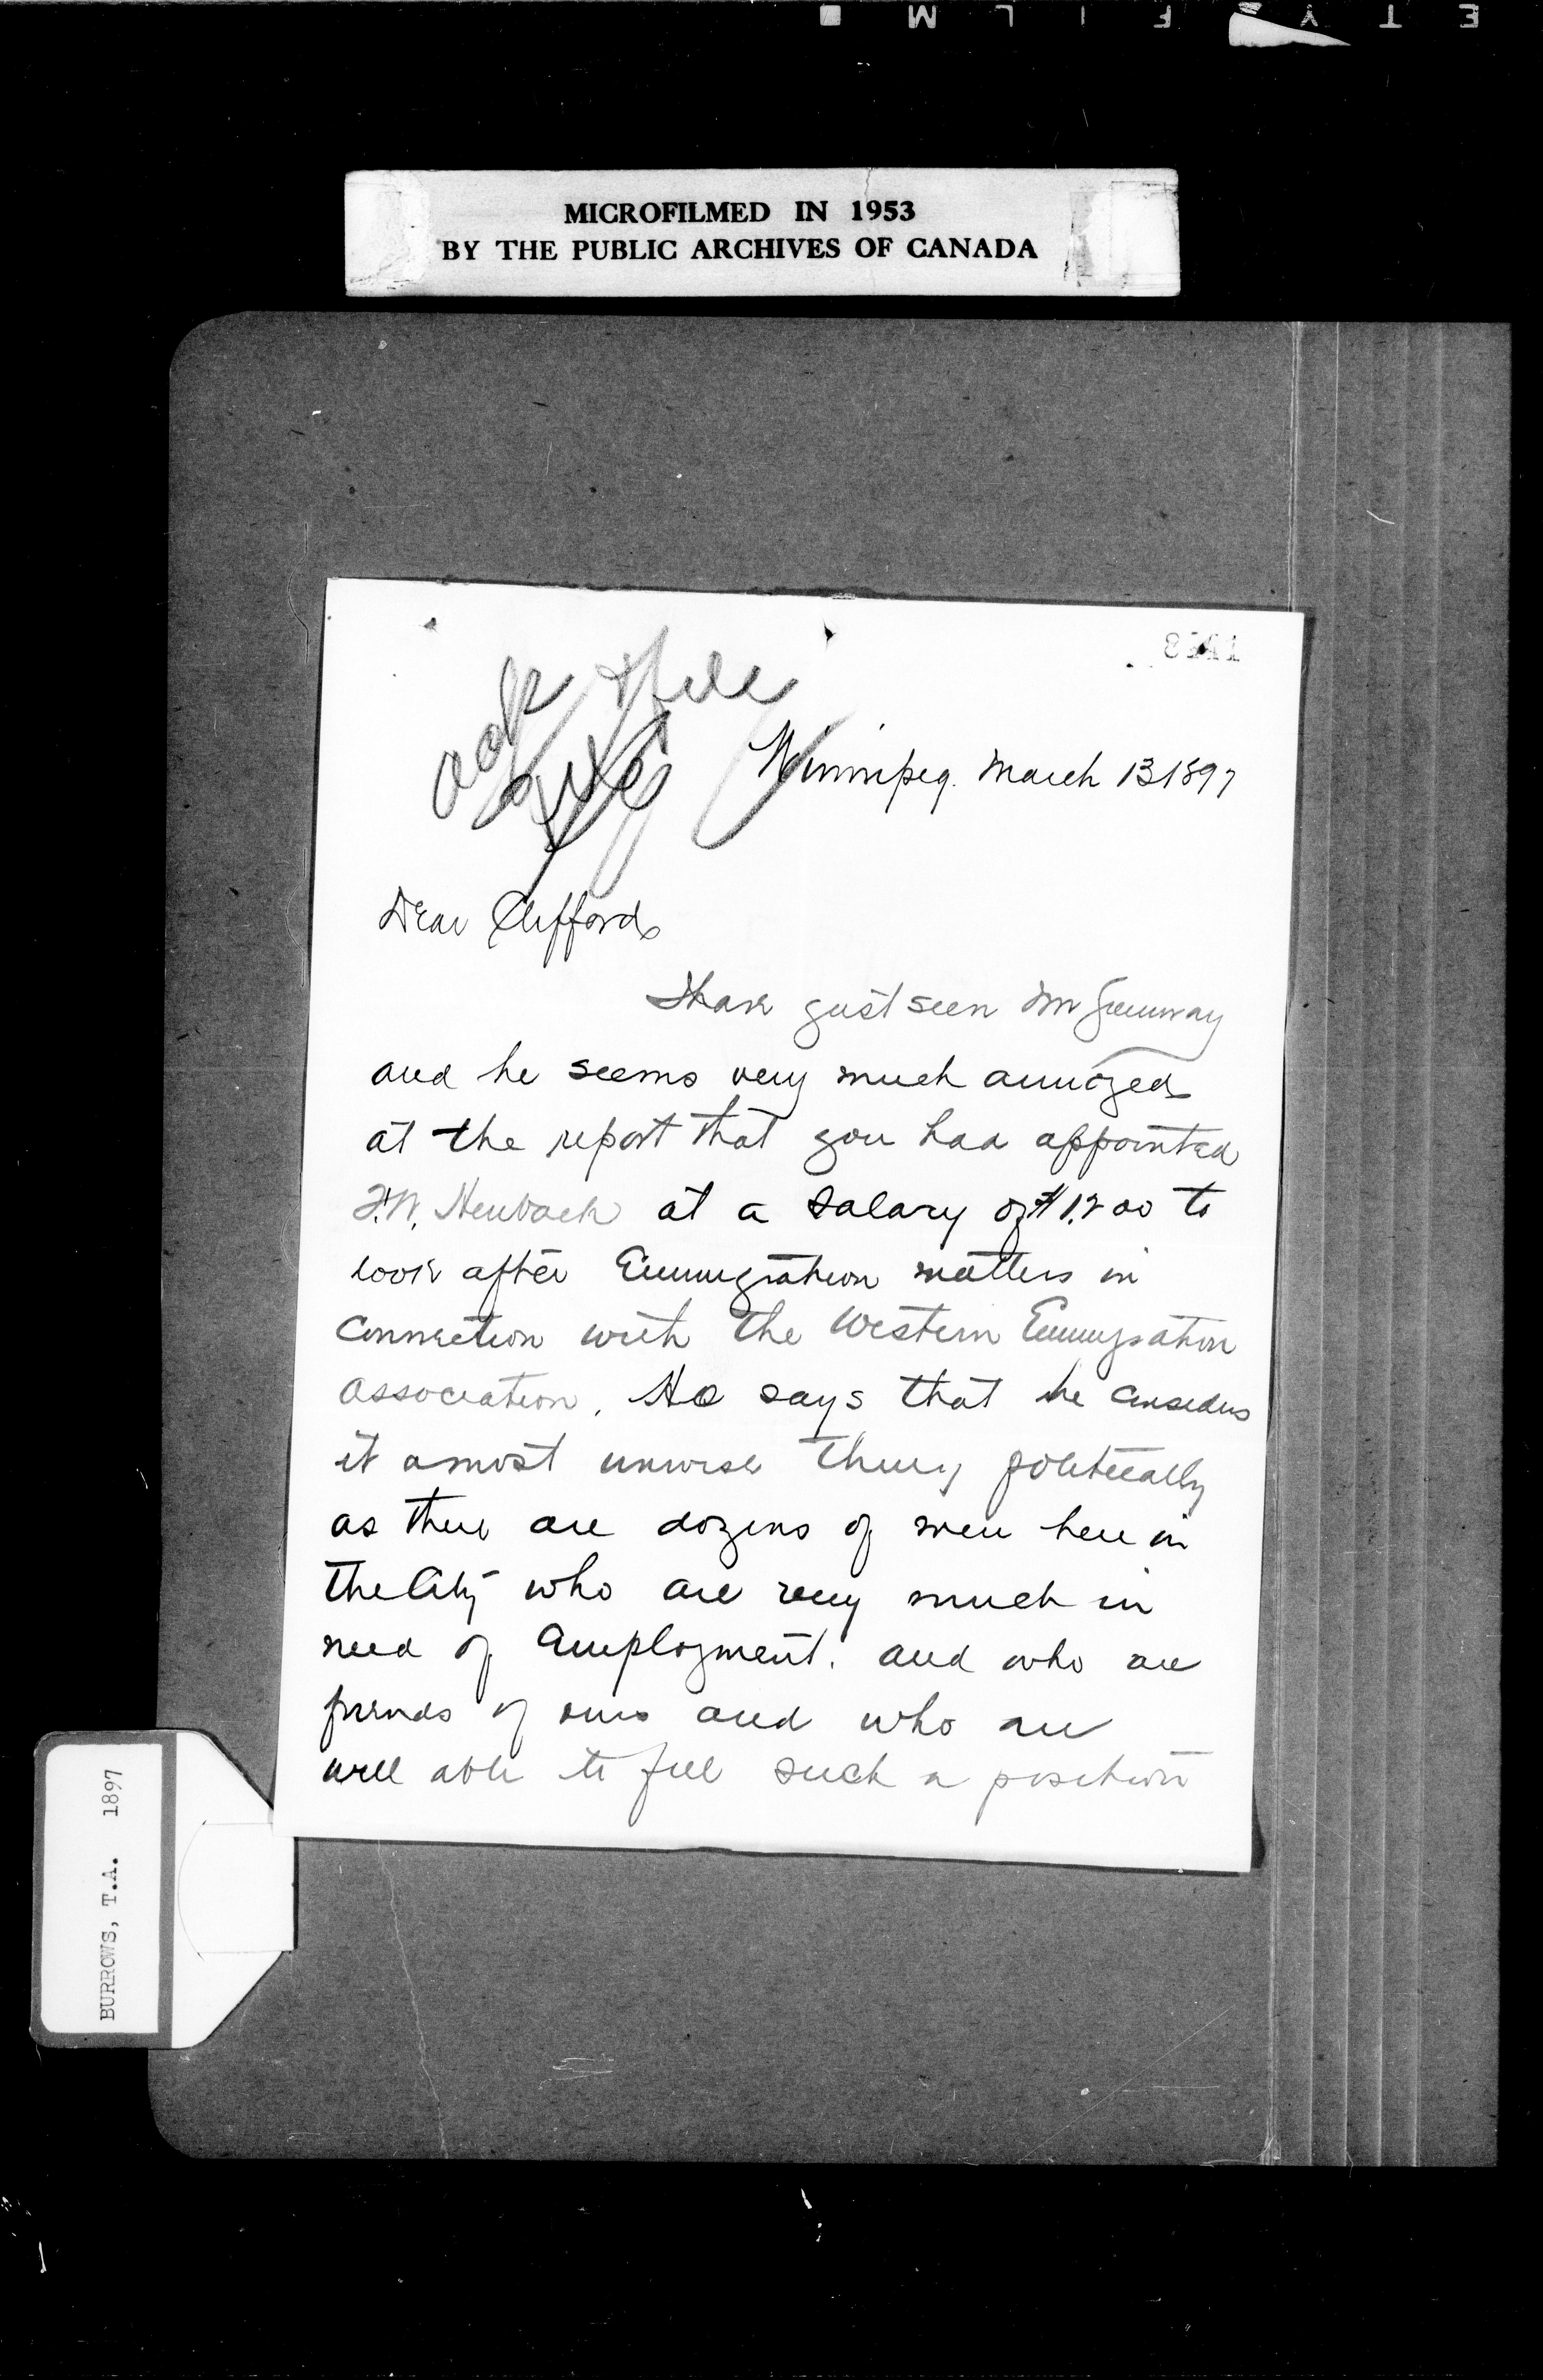 MICROFILMED IN 1953
BY THE PUBLIC ARCHIVES OF CANADA
ack & file
Winnipeg. March 13 1897
Dear Clifford
I have just seen Mr Greenway
and he seems very much annoyed
at the report that you had appointed
F.W. Heubach at a salary of $1,200 to
look after Emmigration matters in
connection with the Western Emmigration
association. He says that he considers
it a most unwise thing politically
as there are dozens of men here in
the City who are very much in
need of employment. and who are
friends of ours and who are
well able to fill such a position
BURROWS, T.A. 1897